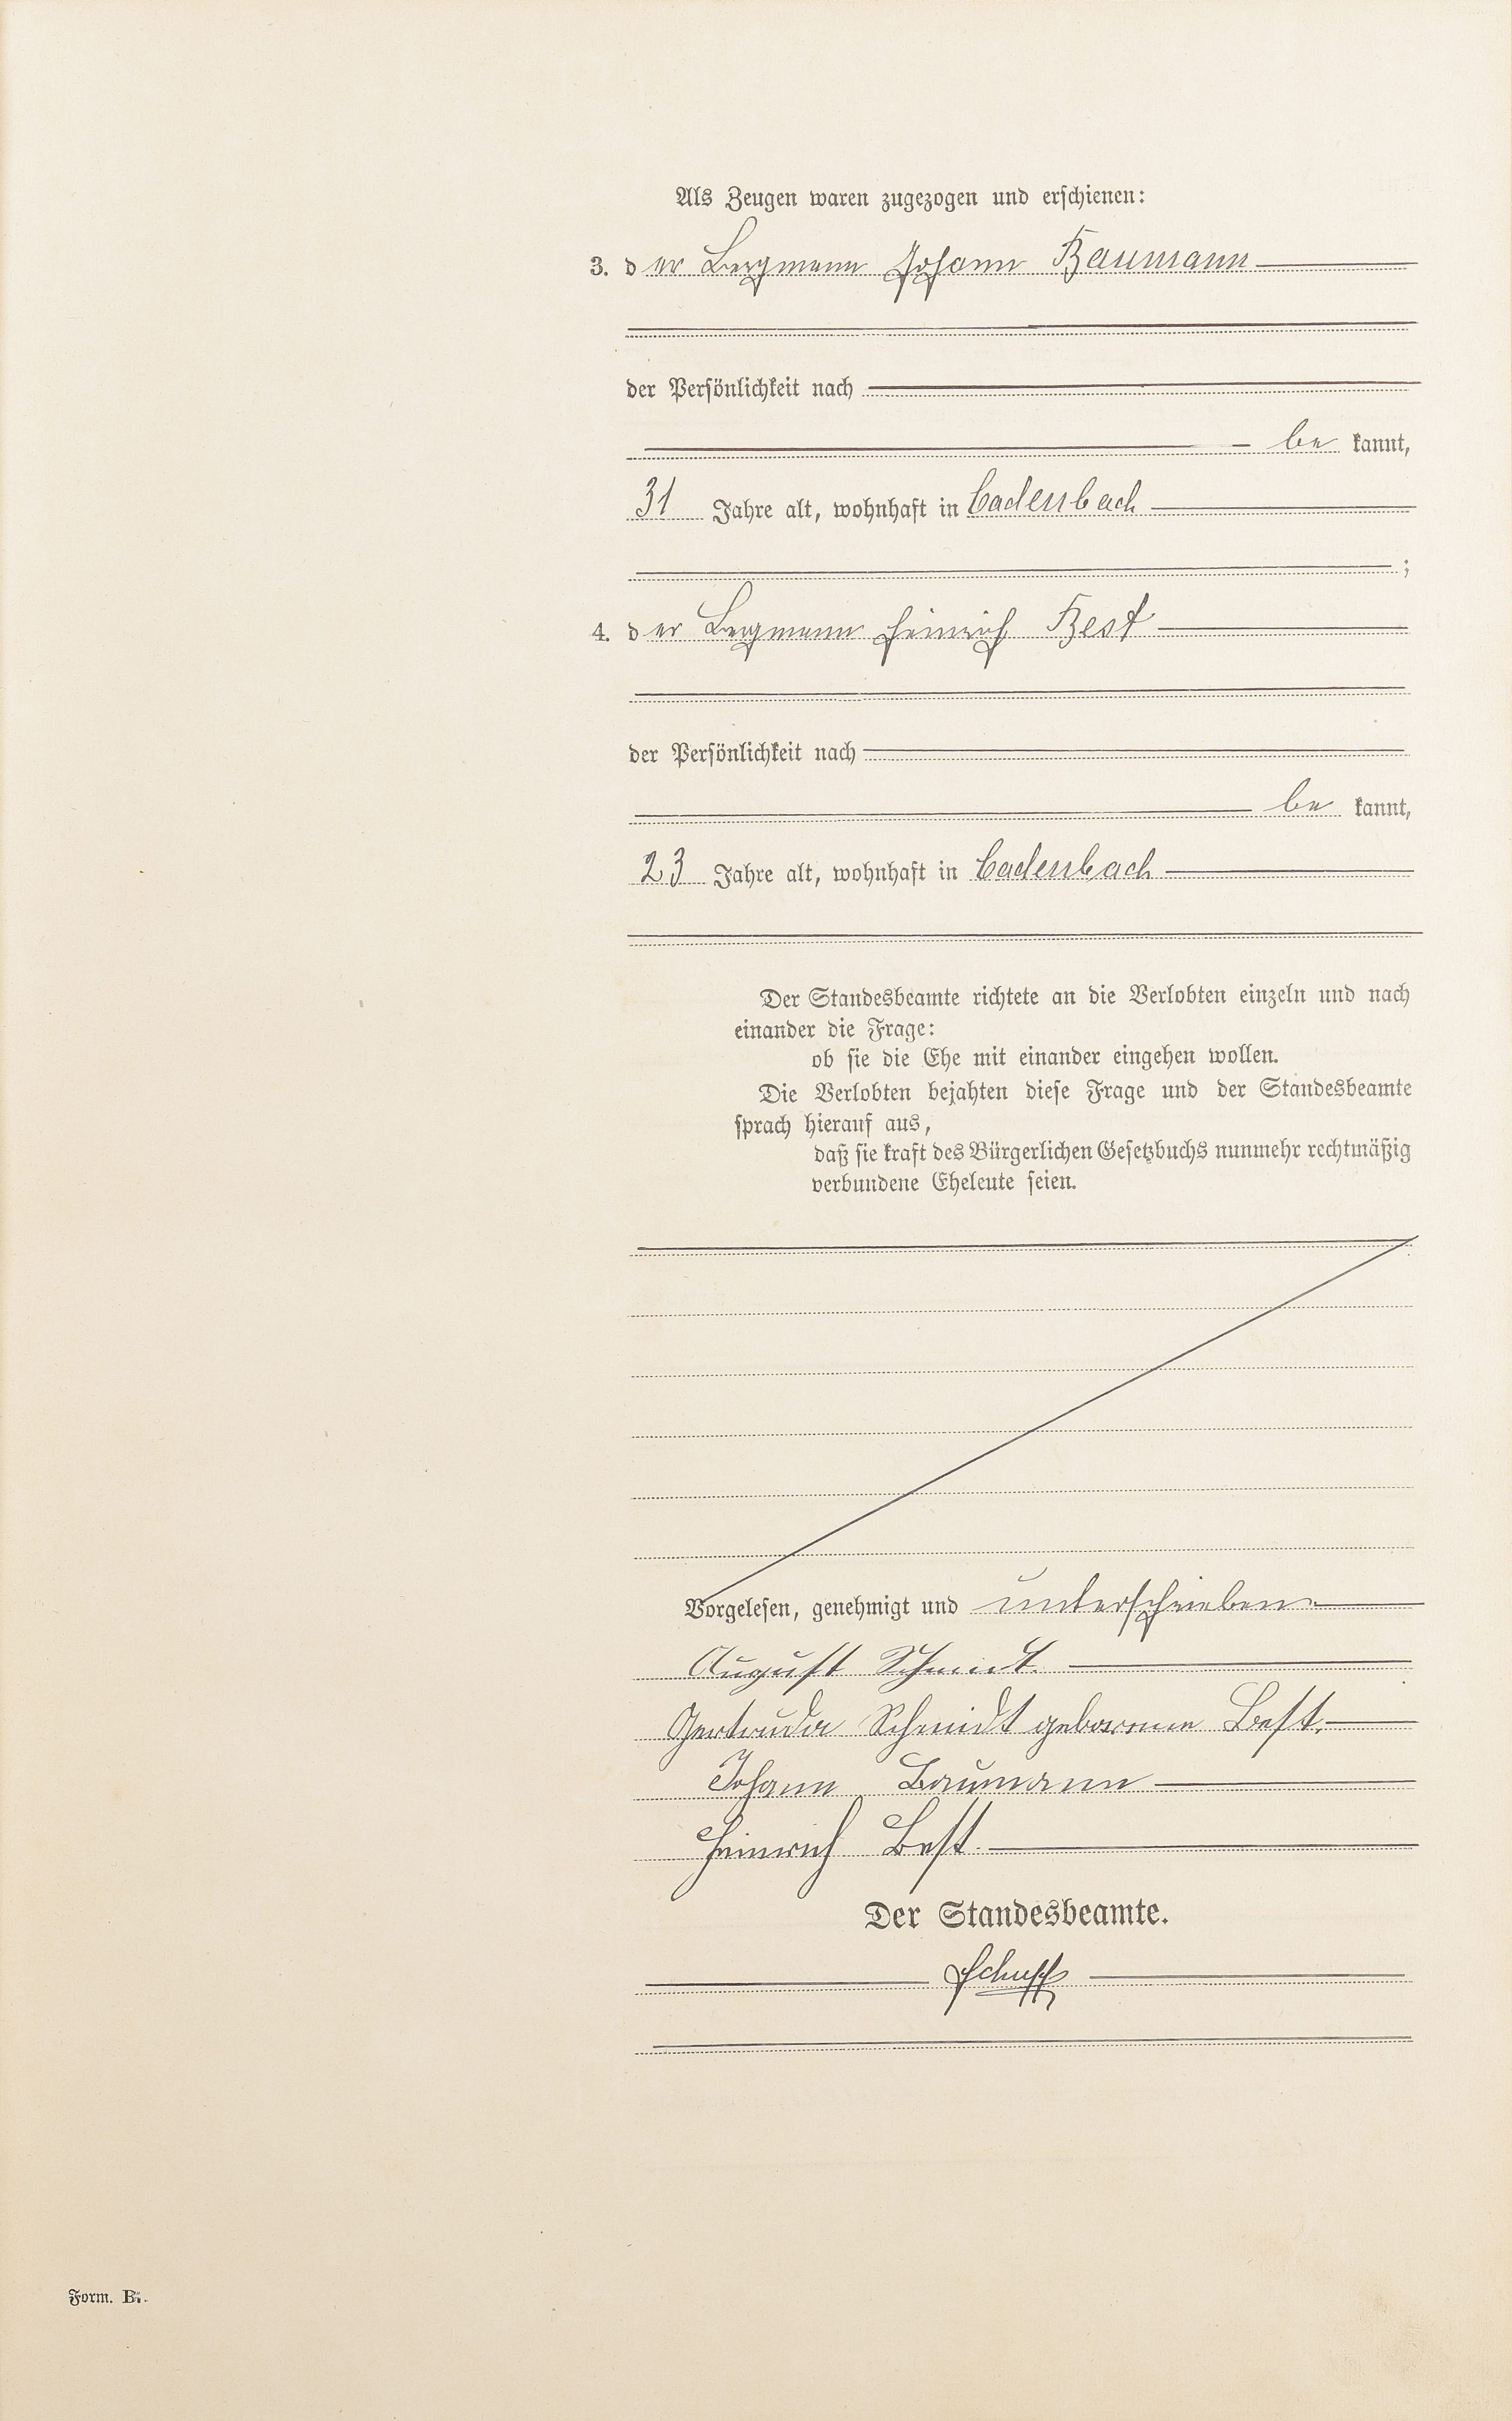 Als Zeugen waren zugezogen und erschienen:
3. der Bergmann Johann Baumann
der Persönlichkeit nach
be kannt,
31 Jahre alt, wohnhaft in Cadenbach
;
4. der Bergmann Heinrich Best
der Persönlichkeit nach
be kannt,
23 Jahre alt, wohnhaft in Cadenbach
Der Standesbeamte richtete an die Verlobten einzeln und nach
einander die Frage:
ob sie die Ehe mit einander eingehen wollen.
Die Verlobten bejahten diese Frage und der Standesbeamte
sprach hierauf aus,
daß sie kraft des Bürgerlichen Gesetzbuchs nunmehr rechtmäßig
verbundene Eheleute seien.
Vorgelesen, genehmigt und unterschrieben
August Schmidt.
Gertruda Schmidt geborenne Best.
Johann Baumann
Heinrich Best.
Der Standesbeamte.
Schupp
Form. B.